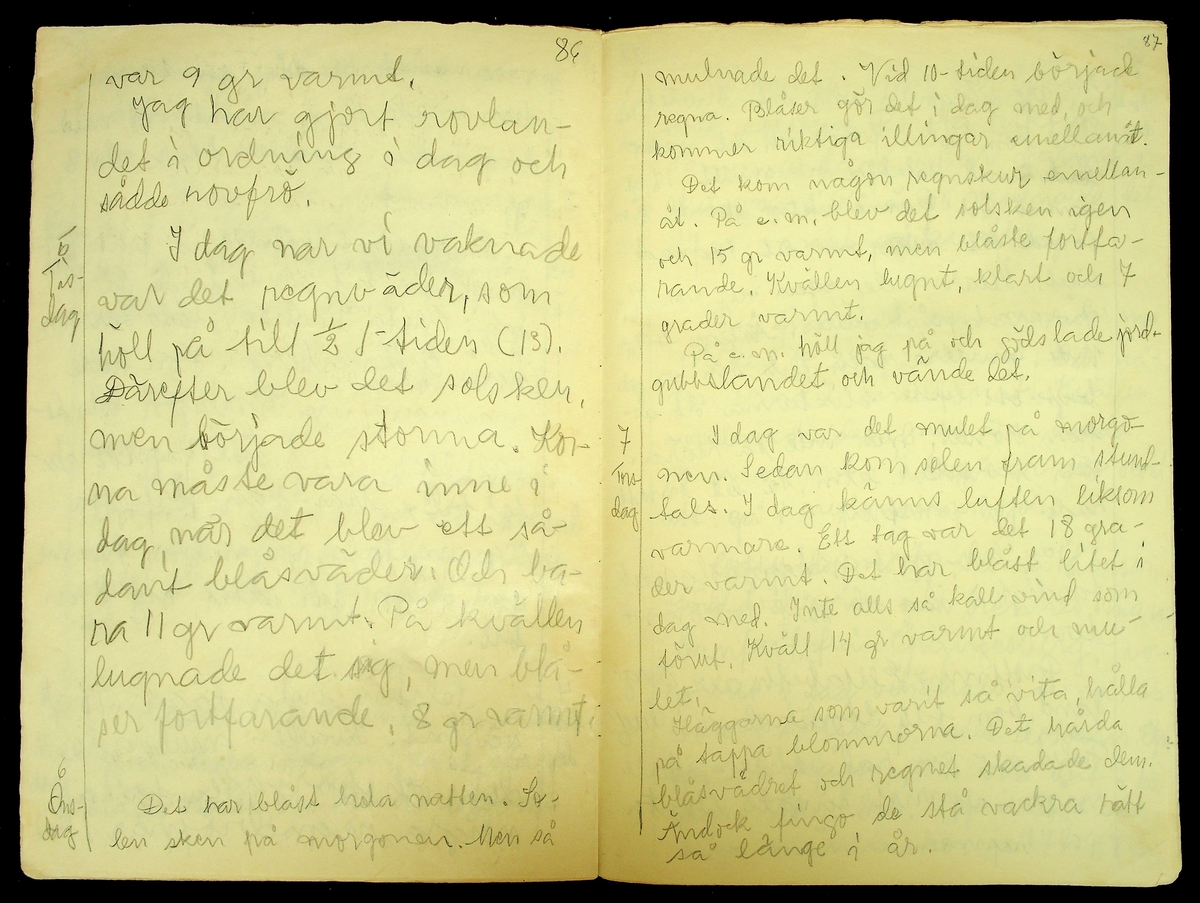 86
var 9 gr varmt.
Jag har gjort rovlan-
det i ordning i dag och
sådde rovfrö.
5
Tis-
dag
I dag när vi vaknade
var det regnväder, som
höll på till ½ 1-tiden (13).
Därefter blev det solsken,
men började storma. Kor-
na måste vara inne i
dag, när det blev ett så-
dant blåsväder. Och ba-
ra 11 gr varmt. På kvällen
lugnade det sig, men blå-
ser fortfarande. 8 gr varmt.
6
Ons-
dag
Det har blåst hela natten. So-
len sken på morgonen. Men så
87
mulnade det. Vid 10-tiden började
regna. Blåser gör det i dag med, och
kommer riktiga illingar emellanåt.
Det kom någon regnskur emellan-
åt. På e.m. blev det solsken igen
och 15 gr varmt, men blåste fortfa-
rande. Kvällen lugnt, klart och 7
grader varmt.
På e.m. höll jag på och gödslade jord-
gubbslandet och vände det.
7
Tors-
dag
I dag var det mulet på morgo-
nen. Sedan kom solen fram stund-
tals. I dag känns luften liksom
varmare. Ett tag var det 18 gra-
der varmt. Det har blåst litet i
dag med. Inte alls så kall vind som
förut. Kväll 14 gr varmt och mu-
let.
Häggarna som varit så vita, hålla
på tappa blommorna. Det hårda
blåsvädret och regnet skadade dem.
Ändock fingo de stå vackra rätt
så länge i år.